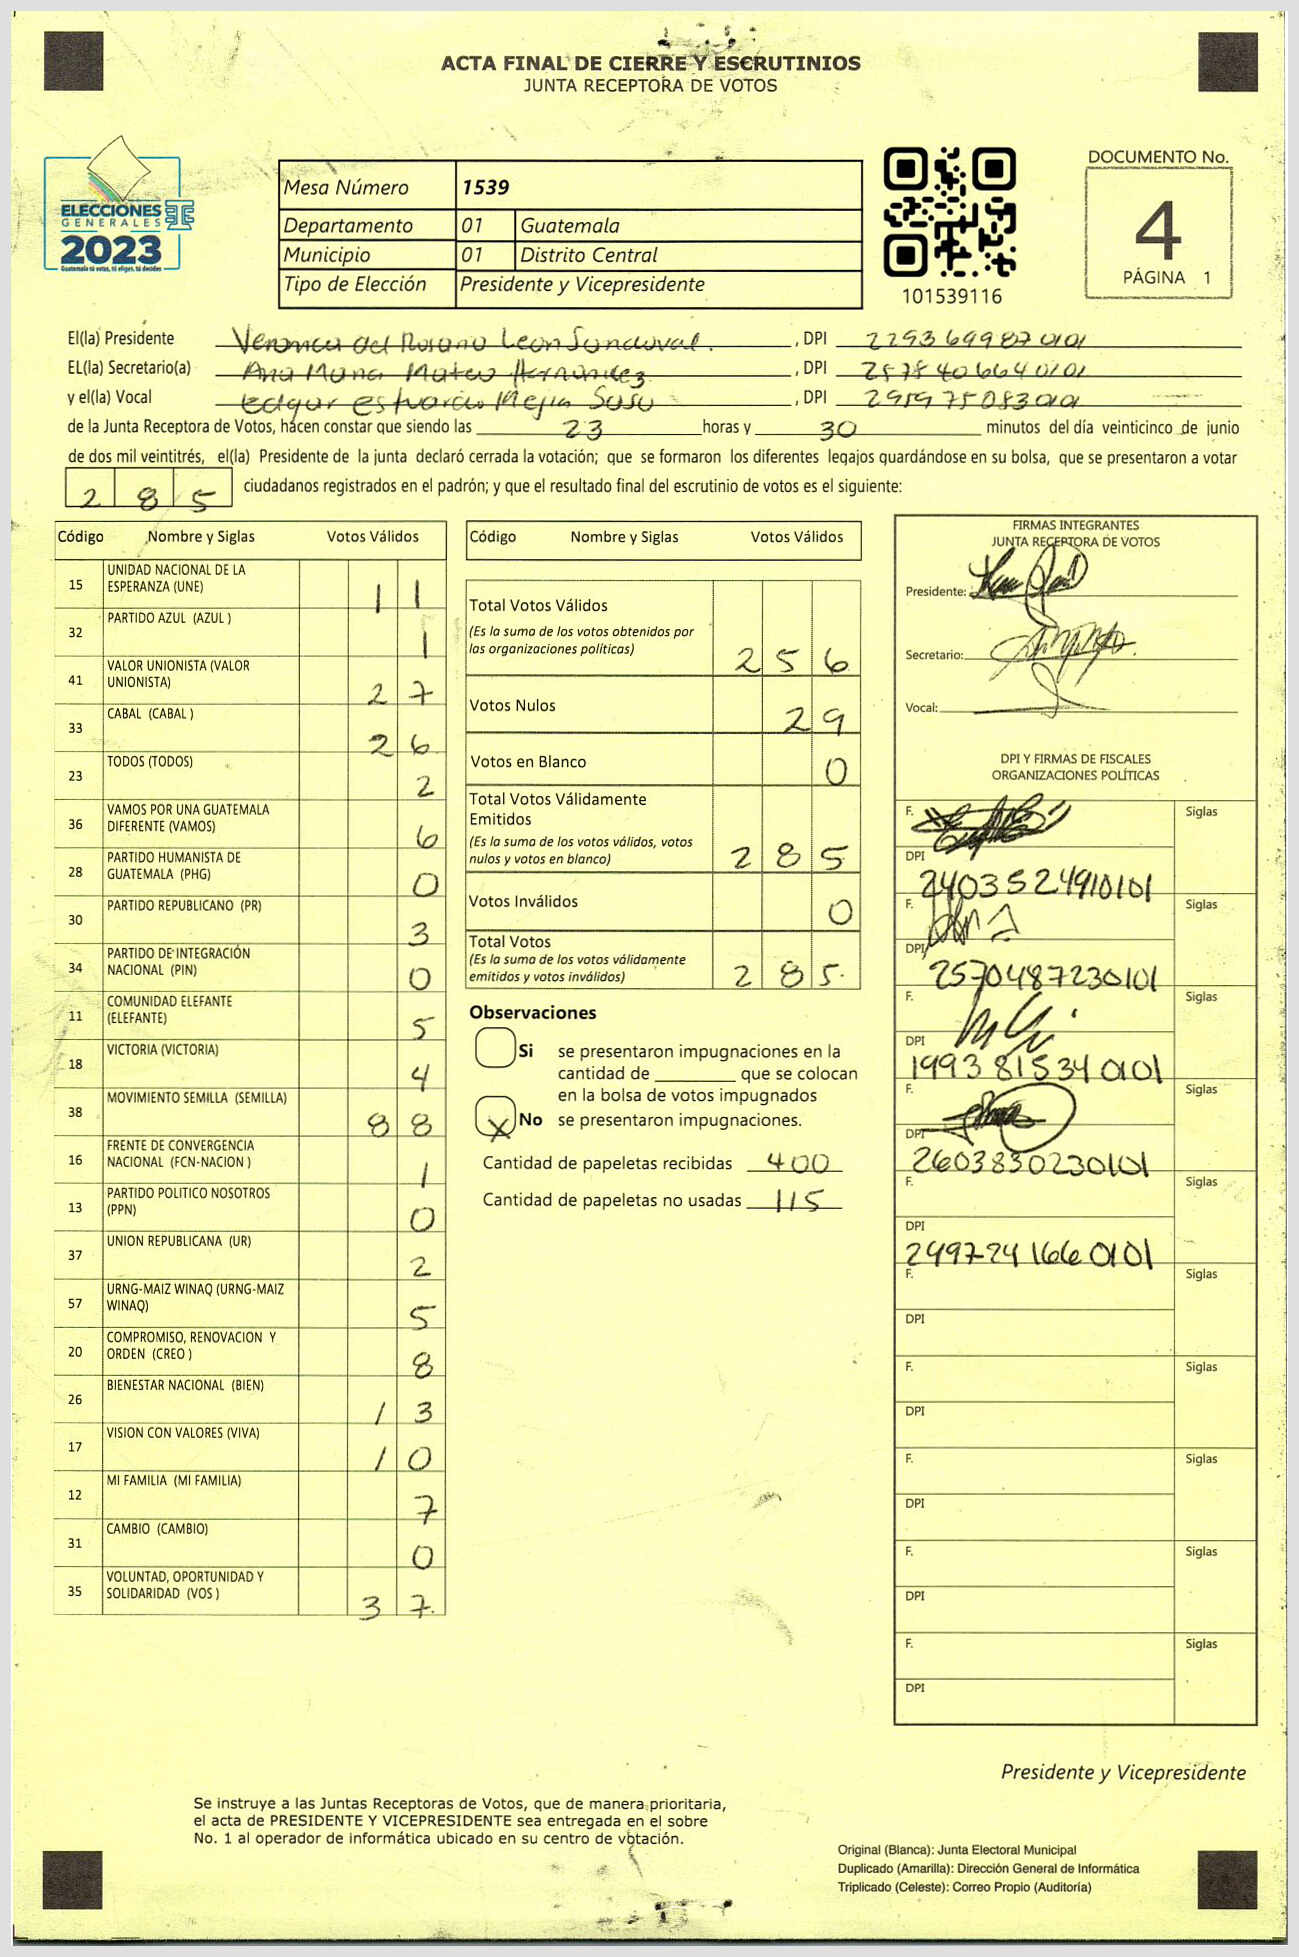 ACTA FINAL DE CIERRE Y ESCRUTINIOS
JUNTA RECEPTORA DE VOTOS
ELECCIONES
GENERALES
2023
Guatemala tú votas, tú eliges, tú decides
Mesa Número 1539
Departamento 01 Guatemala
Municipio 01 Distrito Central
Tipo de Elección Presidente y Vicepresidente
101539116
DOCUMENTO No.
4
PÁGINA 1
El(la) Presidente Veronica del Rosario Leon Sandoval. , DPI 2293699870101
EL(la) Secretario(a) Ana Maria Mateo Hernández , DPI 2878406640101
y el(la) Vocal Edgar Estuardo Mejia Susu , DPI 2959750830101
de la Junta Receptora de Votos, hacen constar que siendo las 23 horas y 30 minutos del día veinticinco de junio
de dos mil veintitrés, el(la) Presidente de la junta declaró cerrada la votación; que se formaron los diferentes legajos quardándose en su bolsa, que se presentaron a votar
285 ciudadanos registrados en el padrón; y que el resultado final del escrutinio de votos es el siguiente:
Código Nombre y Siglas Votos Válidos
15 UNIDAD NACIONAL DE LA
ESPERANZA (UNE) 11
32 PARTIDO AZUL (AZUL ) 1
41 VALOR UNIONISTA (VALOR
UNIONISTA) 27
33 CABAL (CABAL ) 26
23 TODOS (TODOS) 2
36 VAMOS POR UNA GUATEMALA
DIFERENTE (VAMOS) 6
28 PARTIDO HUMANISTA DE
GUATEMALA (PHG) 0
30 PARTIDO REPUBLICANO (PR) 3
34 PARTIDO DE INTEGRACIÓN
NACIONAL (PIN) 0
11 COMUNIDAD ELEFANTE
(ELEFANTE) 5
18 VICTORIA (VICTORIA) 4
38 MOVIMIENTO SEMILLA (SEMILLA) 88
16 FRENTE DE CONVERGENCIA
NACIONAL (FCN-NACION ) 1
13 PARTIDO POLITICO NOSOTROS
(PPN) 0
37 UNION REPUBLICANA (UR) 2
57 URNG-MAIZ WINAQ (URNG-MAIZ
WINAQ) 5
20 COMPROMISO, RENOVACION Y
ORDEN (CREO ) 8
26 BIENESTAR NACIONAL (BIEN) 13
17 VISION CON VALORES (VIVA) 10
12 MI FAMILIA (MI FAMILIA) 7
31 CAMBIO (CAMBIO) 0
35 VOLUNTAD, OPORTUNIDAD Y
SOLIDARIDAD (VOS ) 37
Código Nombre y Siglas Votos Válidos
Total Votos Válidos
(Es la suma de los votos obtenidos por
las organizaciones políticas) 256
Votos Nulos 29
Votos en Blanco 0
Total Votos Válidamente
Emitidos
(Es la suma de los votos válidos, votos
nulos y votos en blanco) 285
Votos Inválidos 0
Total Votos
(Es la suma de los votos válidamente
emitidos y votos inválidos) 285.
Observaciones
Si se presentaron impugnaciones en la
cantidad de ________ que se colocan
en la bolsa de votos impugnados
X No se presentaron impugnaciones.
Cantidad de papeletas recibidas 400
Cantidad de papeletas no usadas 115
FIRMAS INTEGRANTES
JUNTA RECEPTORA DE VOTOS
Presidente:
Secretario:
Vocal:
DPI Y FIRMAS DE FISCALES
ORGANIZACIONES POLÍTICAS
F. Siglas
DPI
2403524910101
F. Siglas
DPI
2570487230101
F. Siglas
DPI
1993815340101
F. Siglas
DPI
2603830230101
F. Siglas
DPI
2497241660101
F. Siglas
DPI
F. Siglas
DPI
F. Siglas
DPI
F. Siglas
DPI
F. Siglas
DPI
Presidente y Vicepresidente
Se instruye a las Juntas Receptoras de Votos, que de manera prioritaria,
el acta de PRESIDENTE Y VICEPRESIDENTE sea entregada en el sobre
No. 1 al operador de informática ubicado en su centro de votación.
Original (Blanca): Junta Electoral Municipal
Duplicado (Amarilla): Dirección General de Informática
Triplicado (Celeste): Correo Propio (Auditoría)